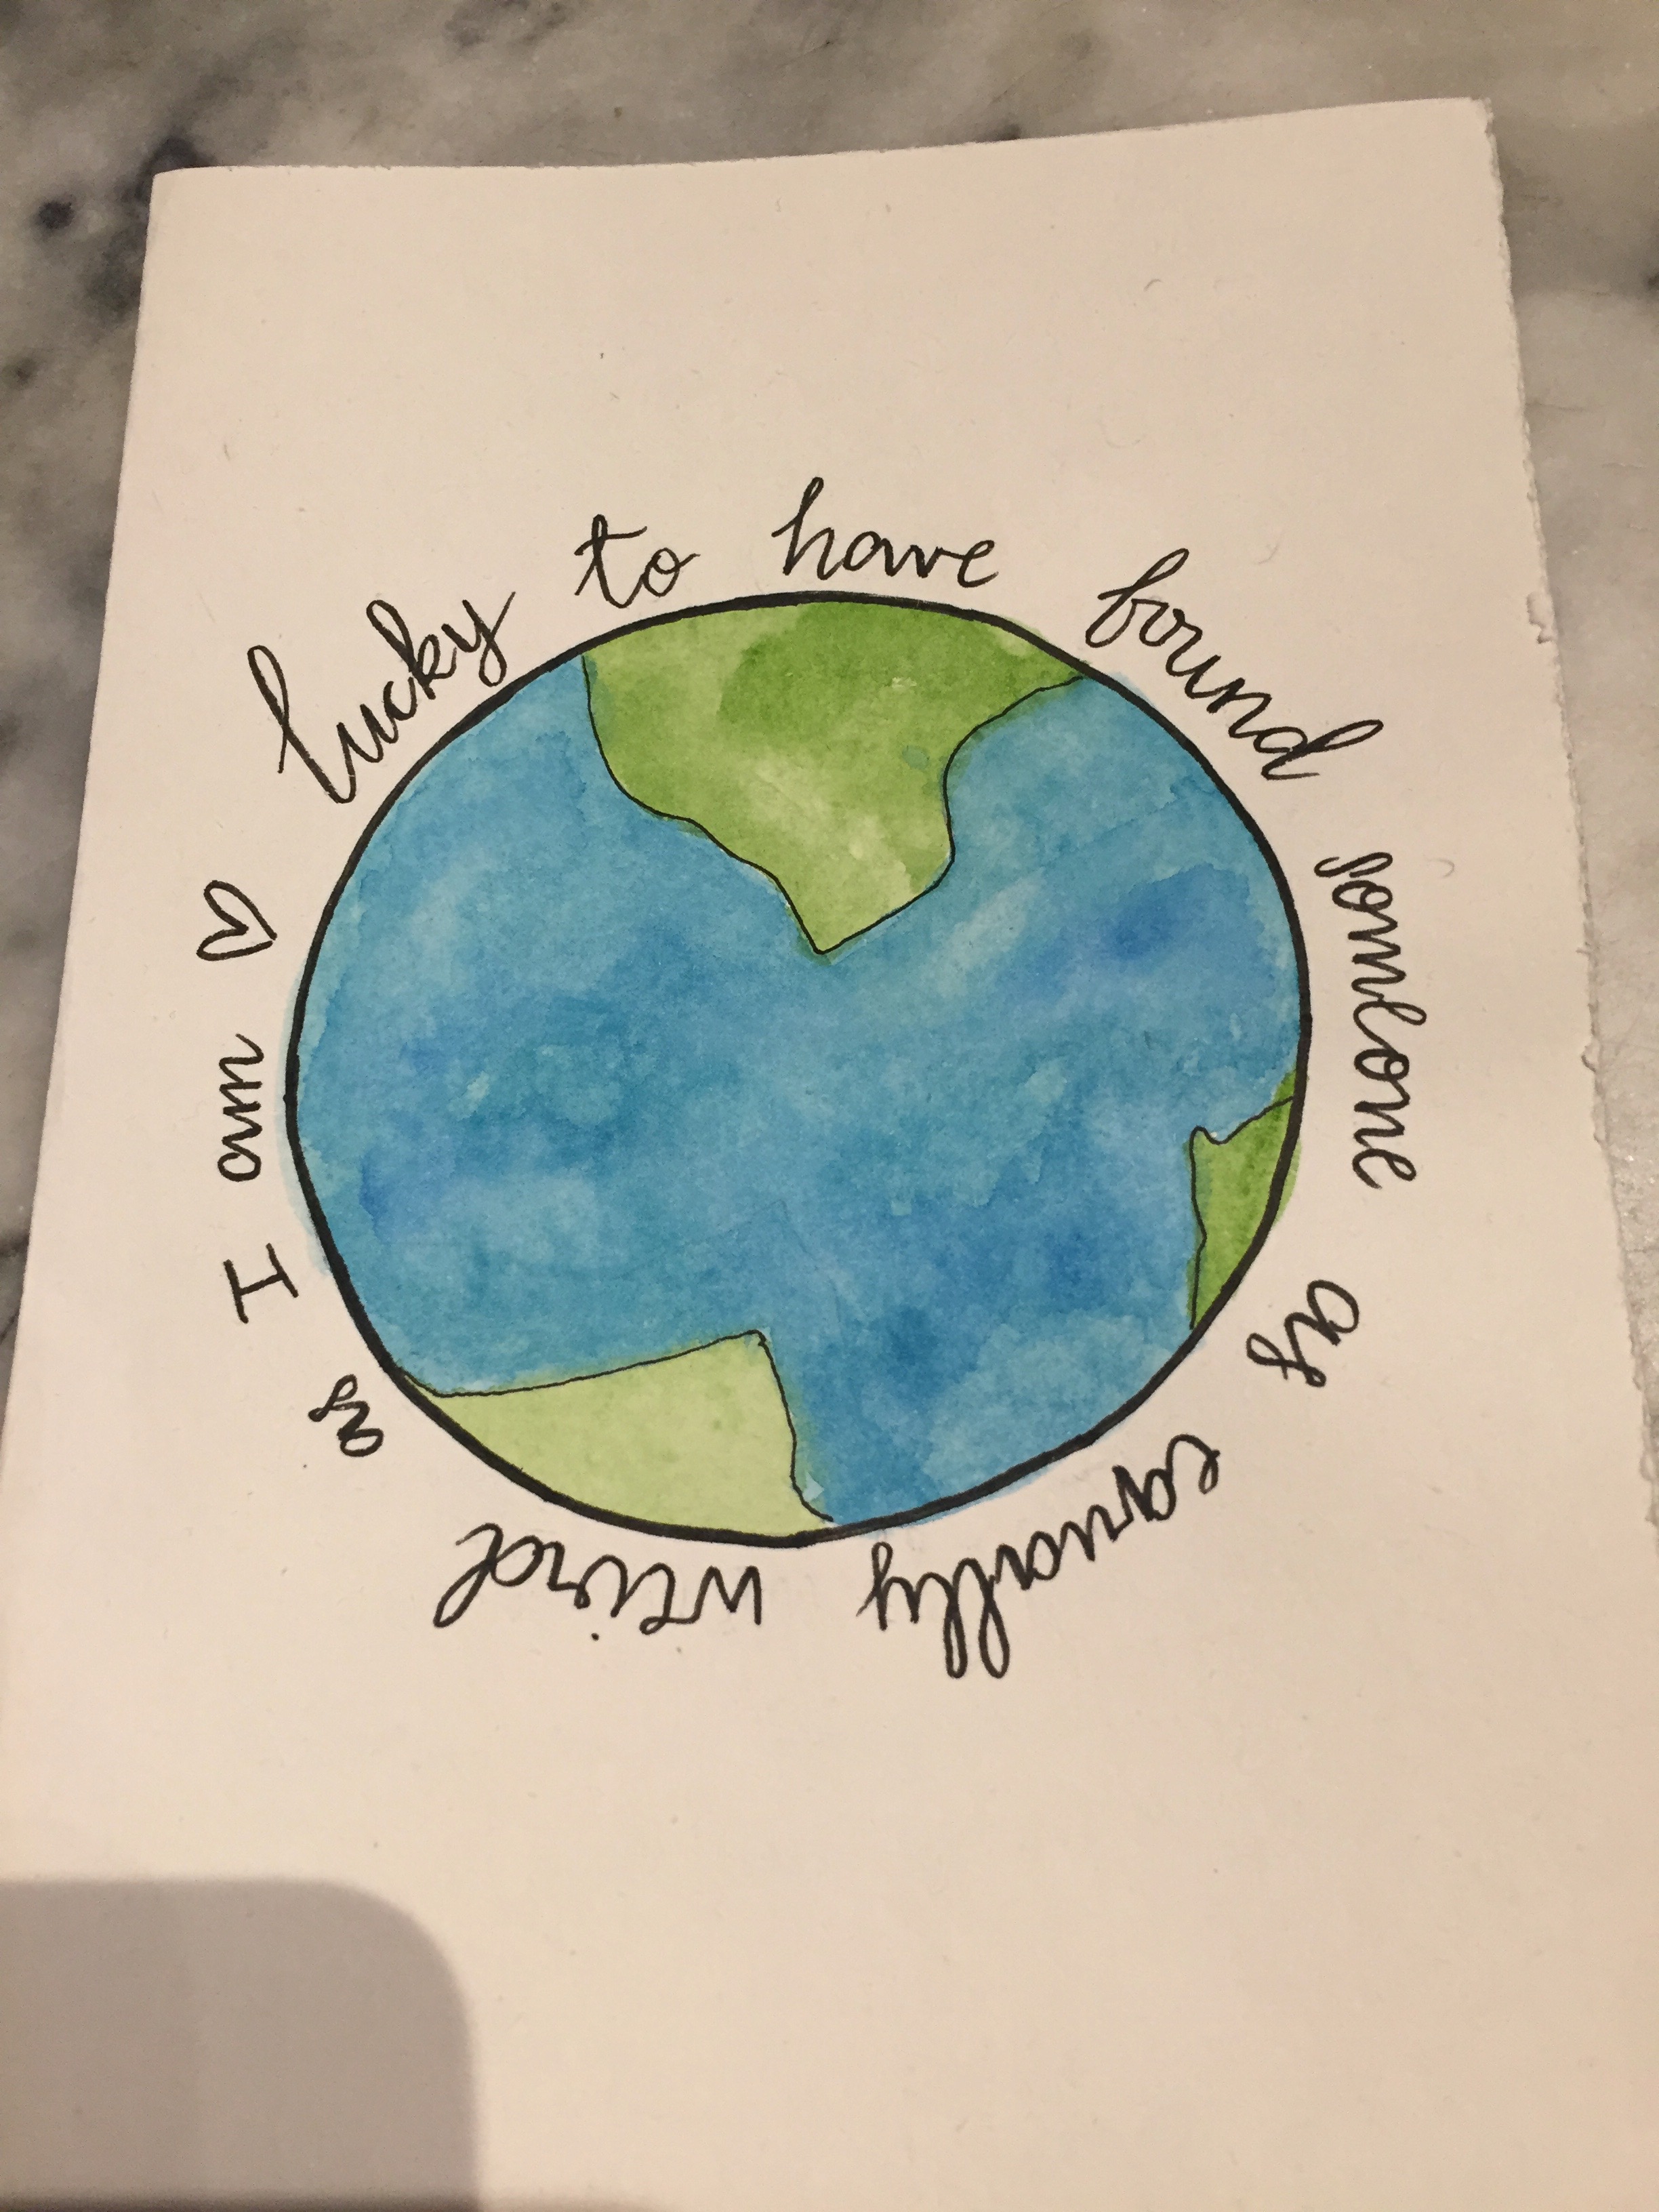 lucky to have found someone as equally weird as I am ♡